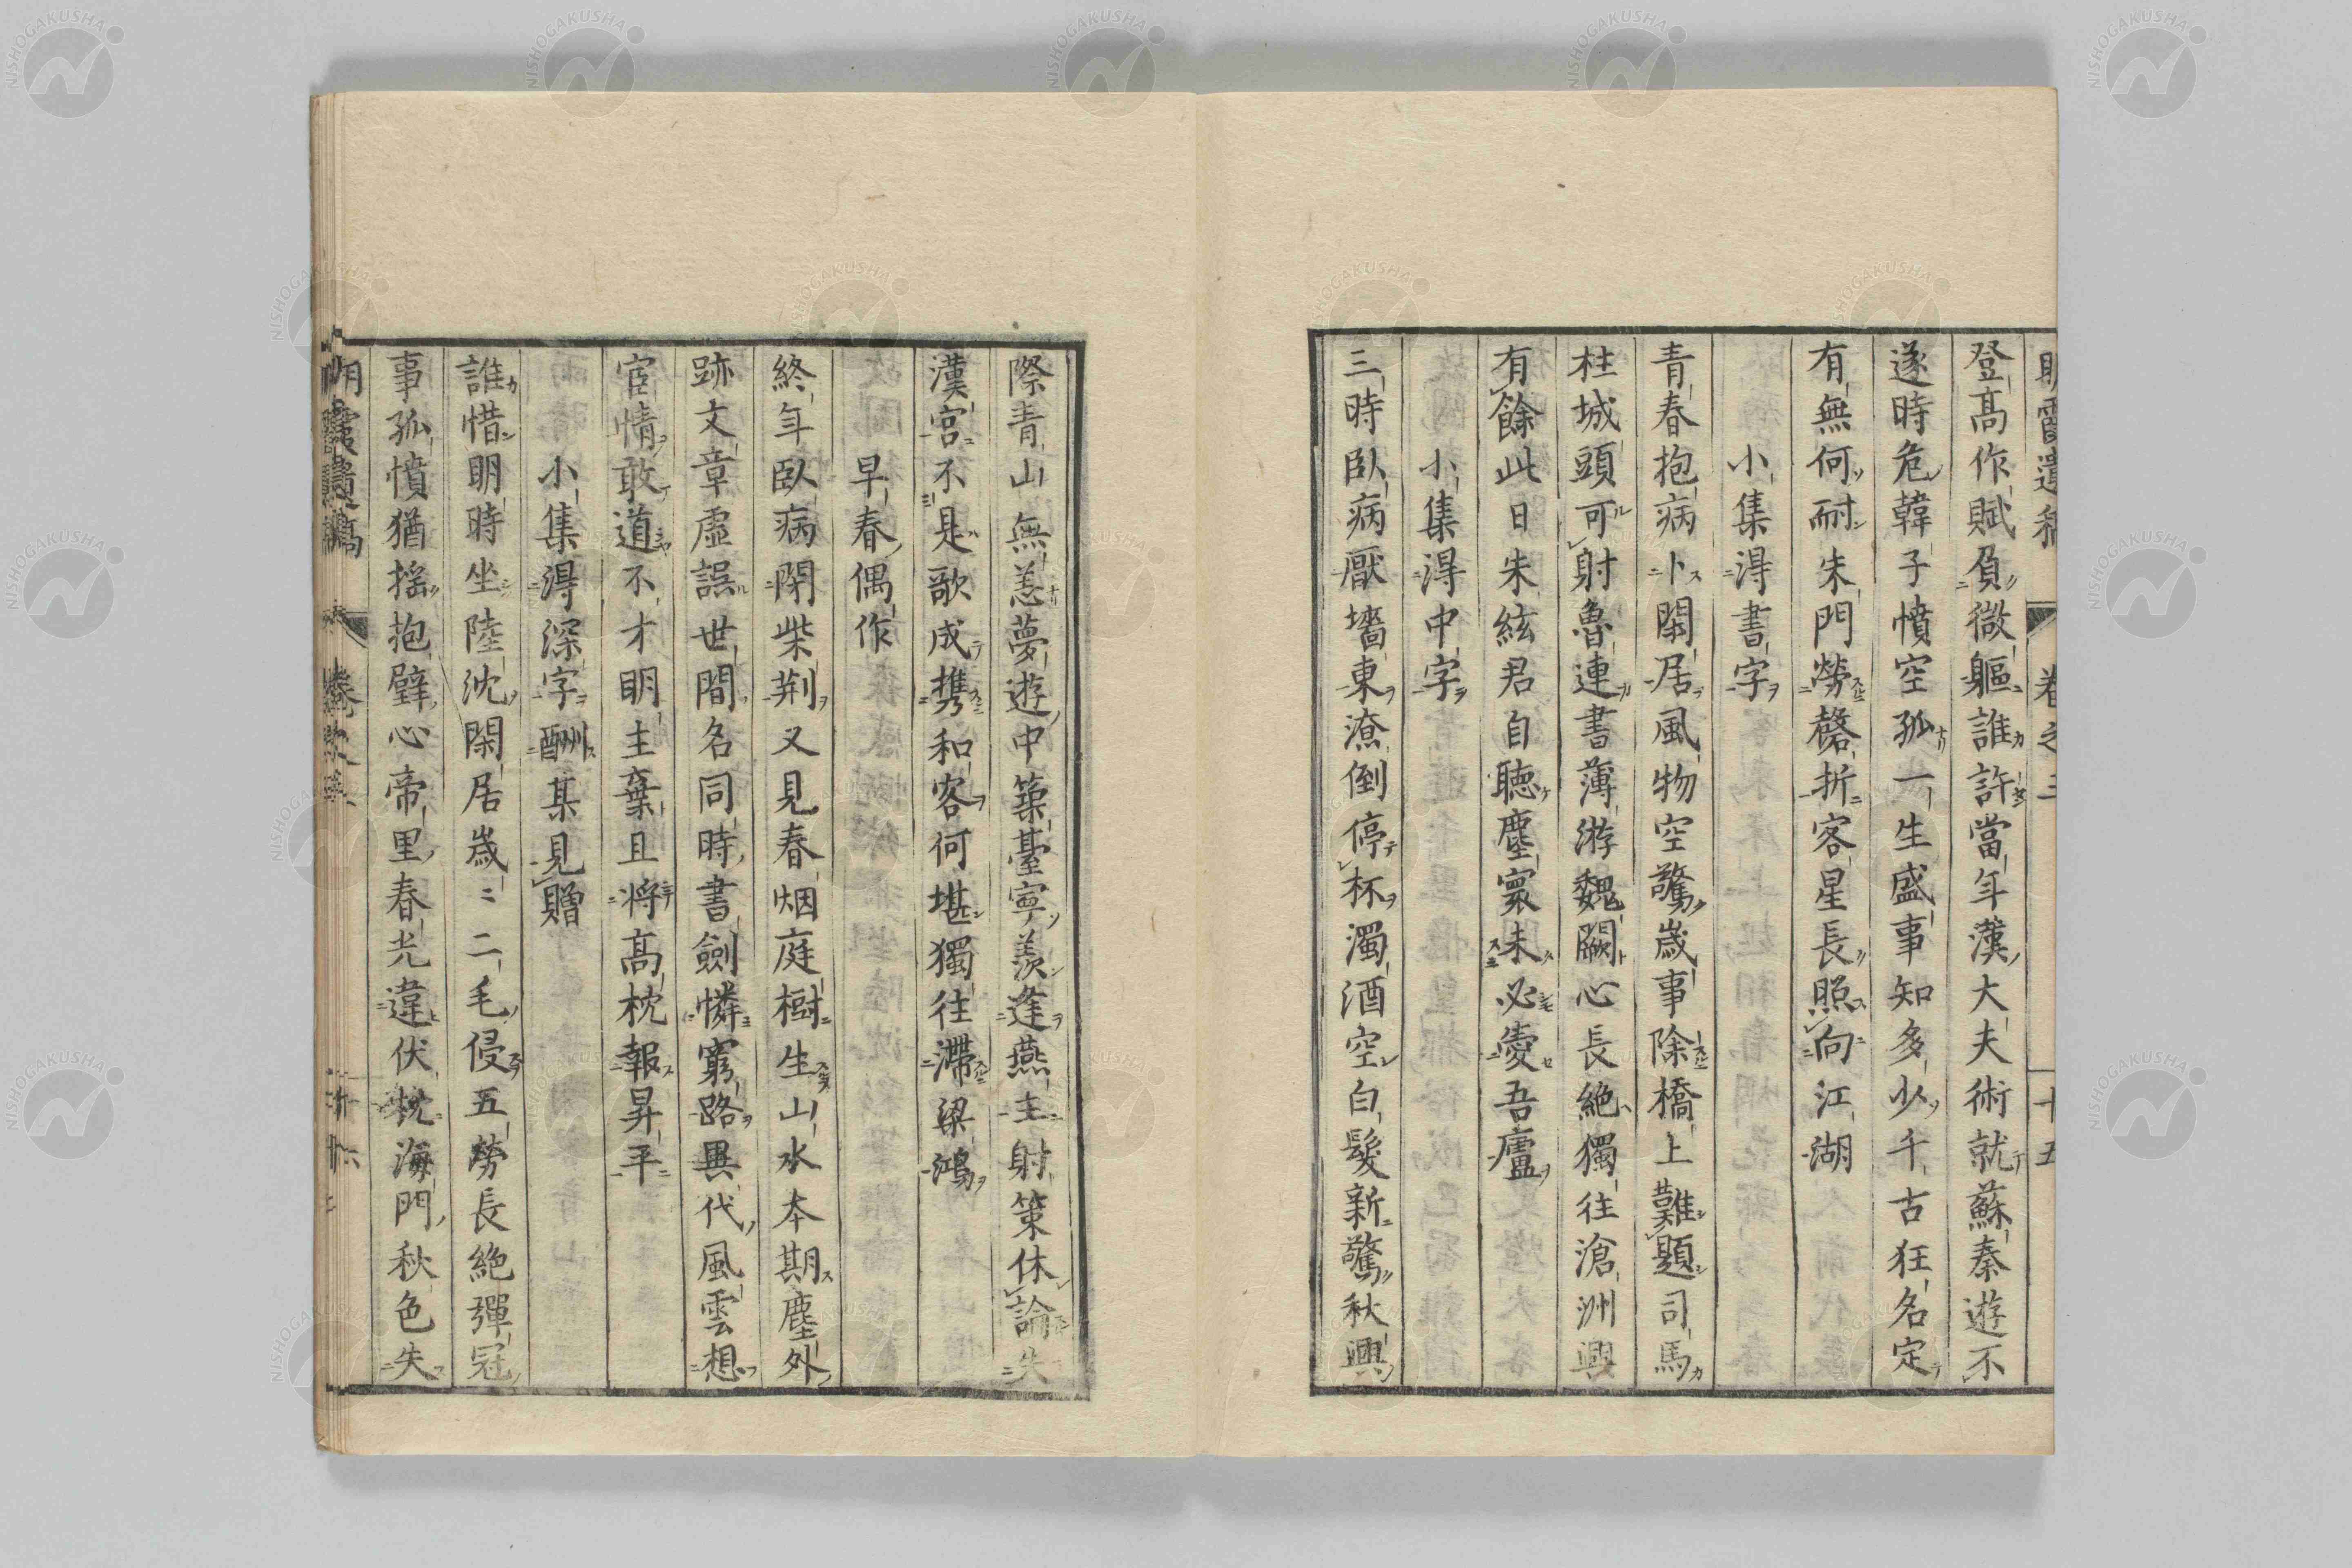 明霞遺稿 卷之三 十五
登髙作賦負微軀誰許當年漢大夫術就蘇秦遊不
遂時危韓子憤空孤一生盛事知多少千古狂名定
有無何耐朱門勞磬折客星長照向江湖
小集得書字
青春抱病卜閑居風物空驚歳事除橋上難題司馬
柱城頭可射魯連書薄游魏闕心長絶獨往滄洲興
有餘此日朱絃君自聴塵寰未必愛吾廬
小集得中字
三時臥病厭墻東潦倒停杯濁酒空白髮新驚秋興
際青山無恙夢遊中築臺寧羨逢燕主射策休論失
漢宮不是歌成携和客何堪獨往滯梁鴻
早春偶作
終年臥病閉柴荆又見春烟庭樹生山水本期塵外
跡文章虚誤世間名同時書劍憐窮路異代風雲想
宦情敢道不才明主棄且将髙枕報昇平
小集得深字酬某見贈
誰惜明時坐陸沈閑居歳〻二毛侵五勞長絶彈冠
事孤憤猶揺抱璧心帝里春光違伏枕海門秋色失